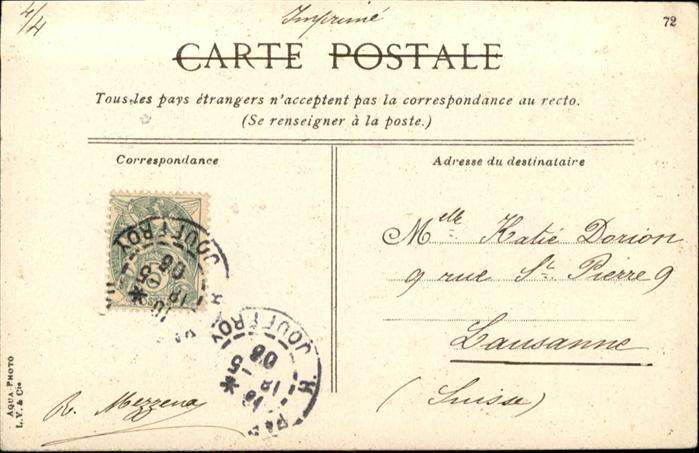 4/4
Imprimé
72
CARTE POSTALE
Tous les pays étrangers n'acceptent pas la correspondance au recto.
(Se renseigner à la poste.)
Correspondance
Adresse du destinataire
Melle Katie Dorion
9 rue St. Pierre 9
Lausanne
(Suisse)
JOUFFROY
18 5
08
JOUFFROY
18 5
08
R. Mezzena
AQUA PHOTO
L. V. & Cie